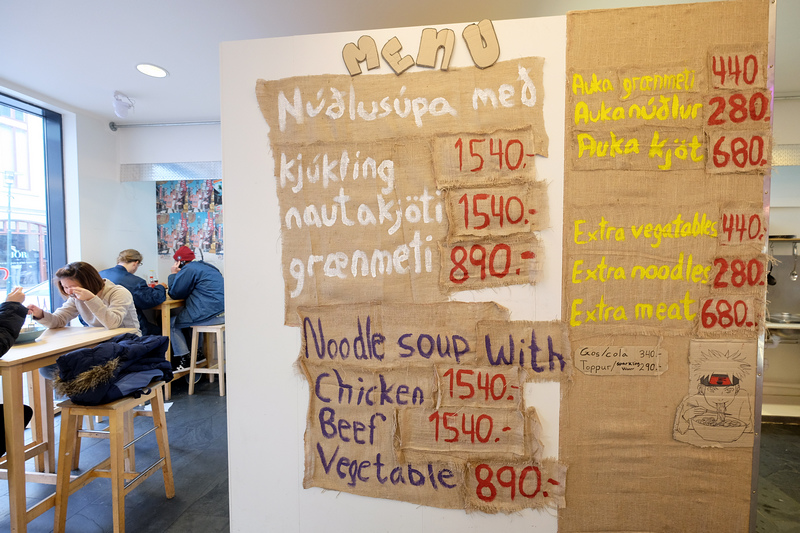 MENU
Núðlusúpa með
kjúkling 1540.-
nautakjöti 1540.-
grænmeti 890.-
Noodle soup With
Chicken 1540.-
Beef 1540.-
Vegetable 890.-
Auka grænmeti 440
Auka núðlur 280.
Auka kjöt 680.
Extra vegetables 440.
Extra noodles 280.
Extra meat 680.
Gos/cola 340.-
Toppur/ 290.-